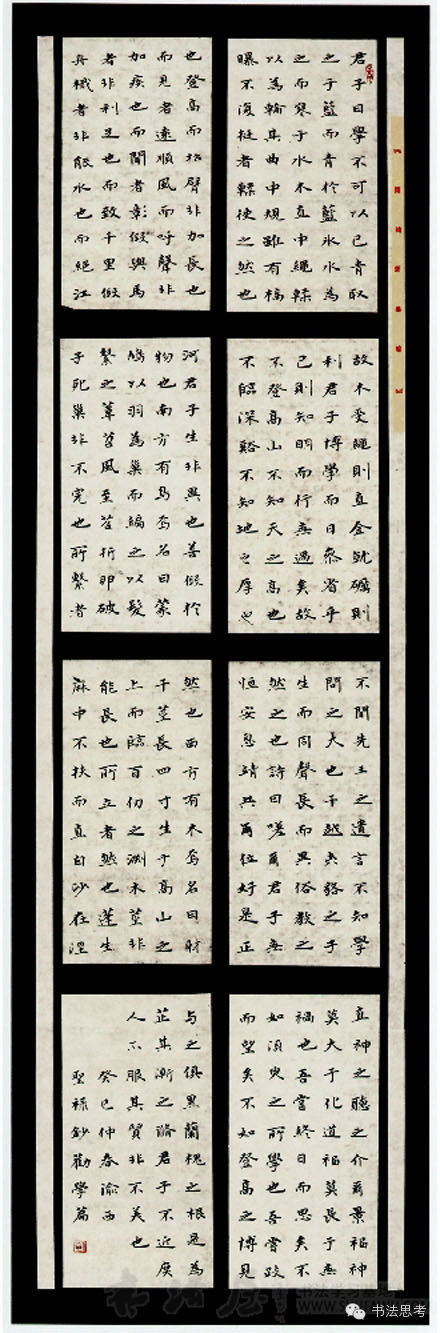 君子曰學不可以已青取
之于藍而青於藍冰水為
之而寒于水木直中繩輮
以為輪其曲中規雖有槁
曝不復挺者輮使之然也
故木受繩則直金就礪則
利君子博學而日參省乎
己則知明而行無過矣故
不登高山不知天之高也
不臨深谿不知地之厚也
不聞先王之遺言不知學
問之大也干越夷貉之子
生而同聲長而異俗教之
然之也詩曰嗟爾君子無
恒安息靖共爾位好是正
直神之聽之介爾景福神
莫大于化道福莫長于無
禍也吾嘗終日而思矣不
如須臾之所學也吾嘗跂
而望矣不如登高之博見
也登高而招臂非加長也
而見者遠順風而呼聲非
加疾也而聞者彰假輿馬
者非利足也而致千里假
舟檝者非能水也而絕江
河君子生非異也善假於
物也南方有鳥焉名曰蒙
鳩以羽為巢而編之以髮
繫之葦苕風至苕折卵破
子死巢非不完也所繫者
然也西方有木焉名曰射
干莖長四寸生于高山之
上而臨百仞之淵木莖非
能長也所立者然也蓬生
麻中不扶而直白沙在涅
與之俱黑蘭槐之根是為
芷其漸之滫君子不近庶
人不服其質非不美也
癸巳仲春渝西
聖祿鈔勸學篇
书法思考